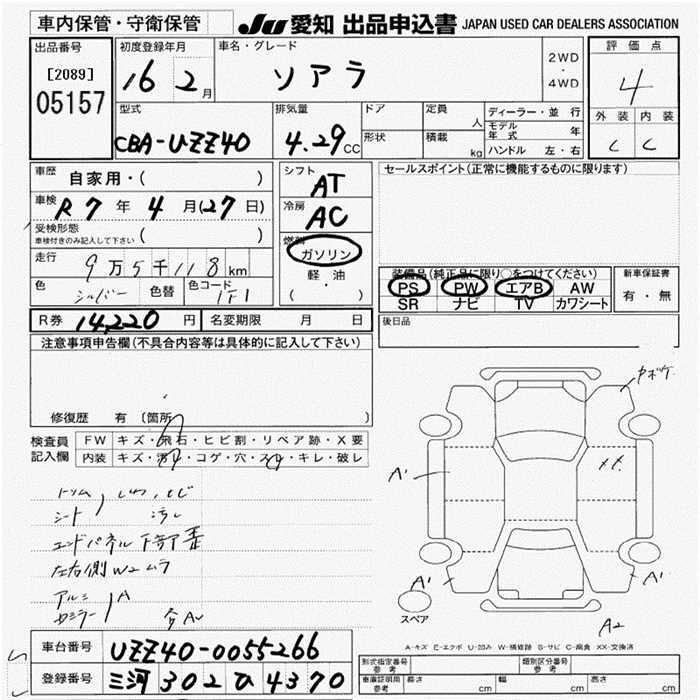 車内保管・守衛保管
JU 愛知 出品申込書 JAPAN USED CAR DEALERS ASSOCIATION
出品番号
[2089]
05157
初度登録年月
16 2 月
車名・グレード
ソアラ
2WD
・
4WD
評価点
4
外装 内装
C C
型式
CBA-UZZ40
排気量
4.29 CC
ドア
形状
定員 人
積載 kg
ディーラー・並行
モデル年式 年
ハンドル 左・右
車歴
自家用・( )
車検
R7年 4月(27日)
受検形態
車検付きのみ記入して下さい ( )
走行
9万5千118km
色 シルバー 色替 色コード 1F1
シフト
AT
冷房
AC
燃料
ガソリン
軽油
( ・ )
セールスポイント(正常に機能するものに限ります)
装備品(純正品に限り○をつけてください)
PS PW エアB AW
SR ナビ TV カワシート
新車保証書
有・無
R券 14,220 円 名変期限 月 日
後日品
注意事項申告欄(不具合内容等は具体的に記入して下さい)
修復歴 有(箇所
検査員
記入欄
FW キズ・飛石・ヒビ割・リペア跡・X要
内装 キズ・汚レ・コゲ・穴・スレ・キレ・破レ
トリム
シート
エンドパネル下部
左右側W2ムラ
アルミ
A
A'
XX
A'
A'
スペア
A2
A-キズ E-エクボ U-凹み W-補修跡 S-サビ C-腐食 XX-交換済
車台番号 UZZ40-0055266
登録番号 三河 302 ひ 4370
型式指定番号
参考
類別区分番号
参考
車庫証明用
参考
長さ cm 幅 cm 高さ cm